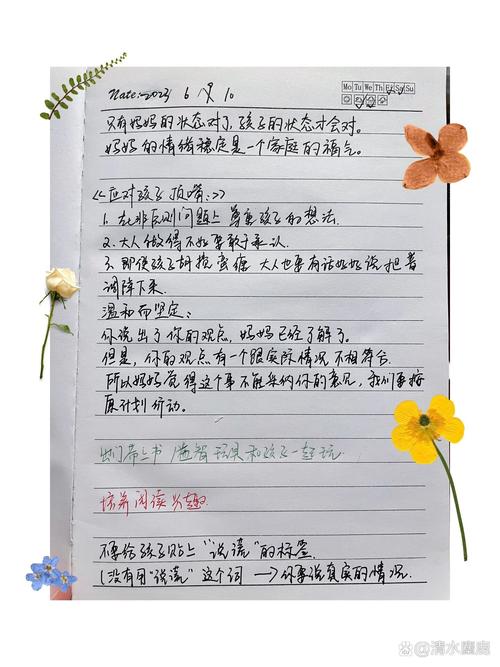 Date: 2023 6月10
Mo Tu We Th Fr Sa Su
只有妈妈的状态对了，孩子的状态才会对。
妈妈的情绪稳定是一个家庭的福气。
《应对孩子顶嘴：》
1. 在非原则问题上尊重孩子的想法.
2. 大人做得不好要敢于承认.
3. 即使孩子胡搅蛮缠 大人也要有话好好说 把着
调降下来.
温和而坚定：
你说出了你的观点，妈妈已经了解了。
但是，你的观点有一个跟实际情况不相符合.
所以妈妈觉得这个事不能采纳你的意见，我们要按
原计划行动.
出门带上书 益智玩具和孩子一起玩.
培养阅读兴趣.
不要给孩子贴上“说谎”的标签.
(没有用“说谎”这个词 → 你要说真实的情况.
清水麋鹿